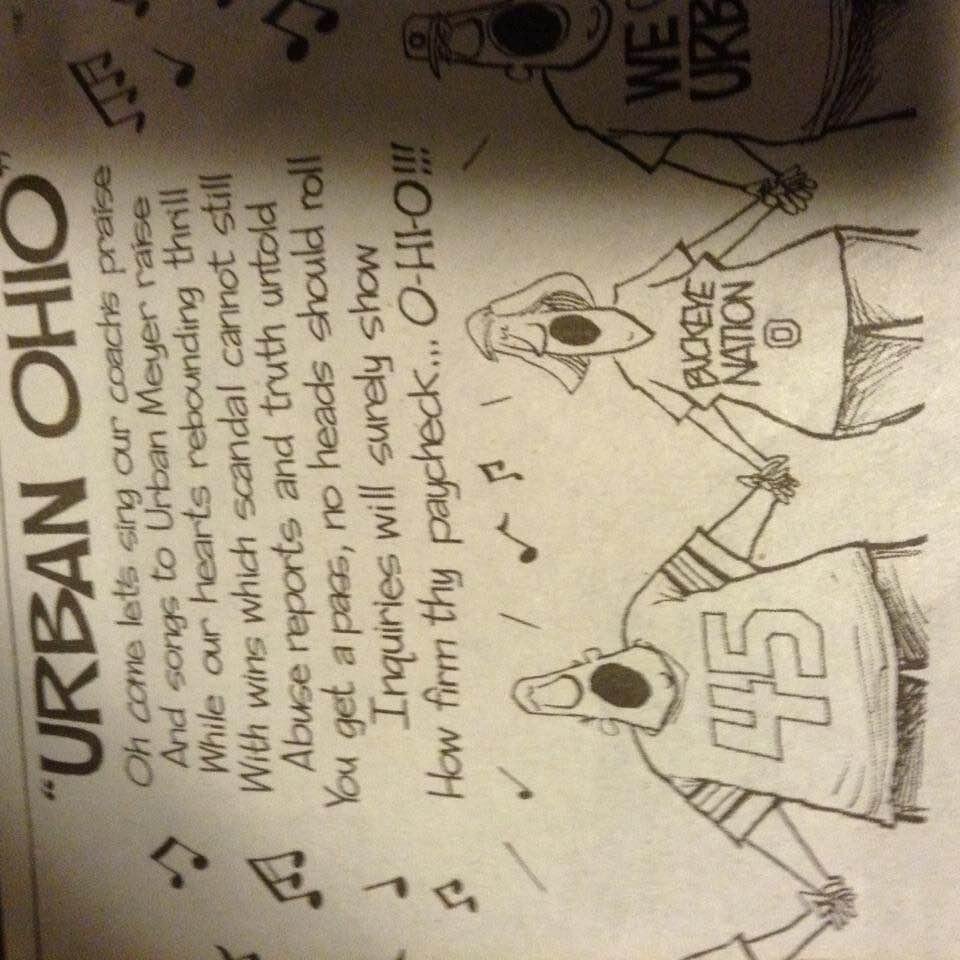 "URBAN OHIO"
Oh come let's sing our coach's praise
And songs to Urban Meyer raise
While our hearts rebounding thrill
With wins which scandal cannot still
Abuse reports and truth untold
You get a pass, no heads should roll
Inquiries will surely show
How firm thy paycheck... O-HI-O!!!
45
BUCKEYE
NATION
O
WE
URB